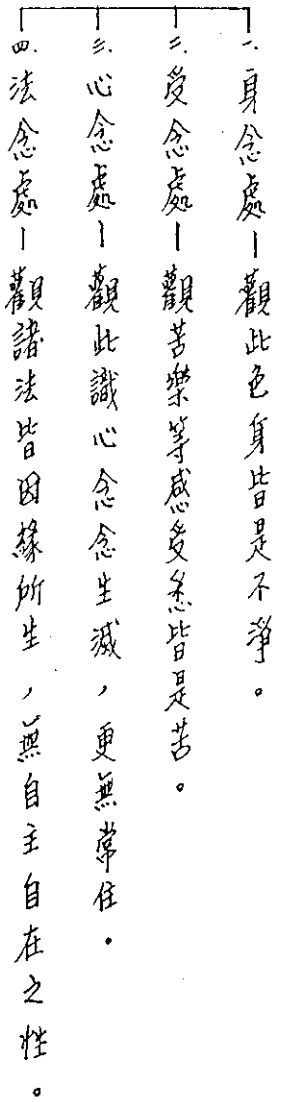 一、身念處—觀此色身皆是不淨。
二、受念處—觀苦樂等感受悉皆是苦。
三、心念處—觀此識心念念生滅，更無常住。
四、法念處—觀諸法皆因緣所生，無自主自在之性。